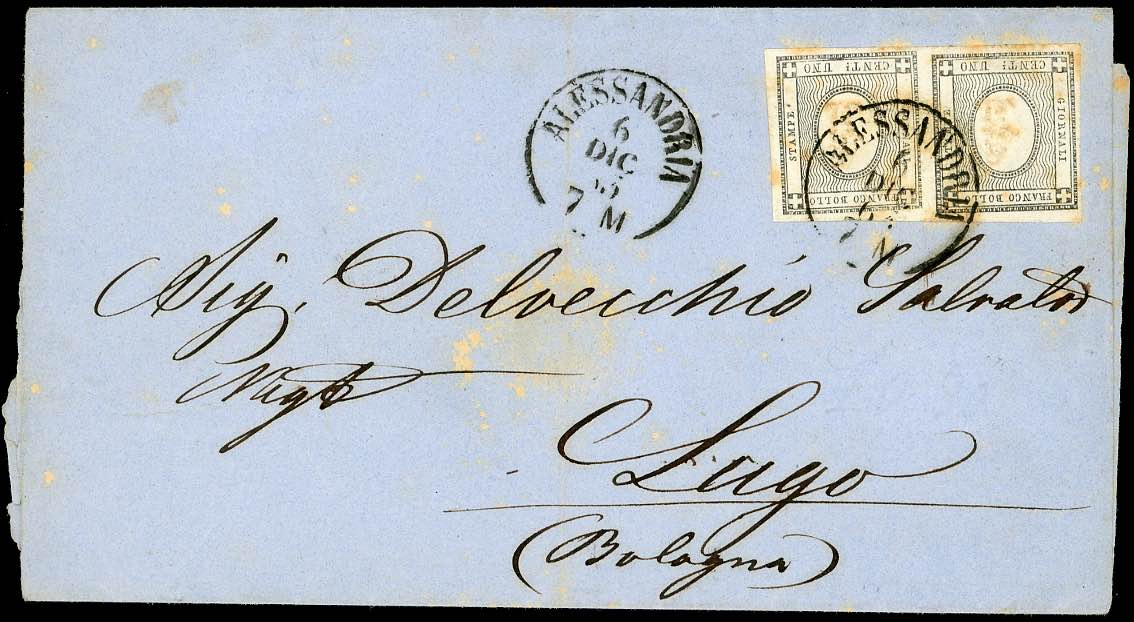 ALESSANDRIA
6
DIC
7 M
CENTI UNO
STAMPE
FRANCO BOLLO
CENTI UNO
GIORNALI
FRANCO BOLLO
ALESSANDRIA
6
DIC
7 M
Sig. Delvecchio Salvator
Negte
Lugo
(Bologna)